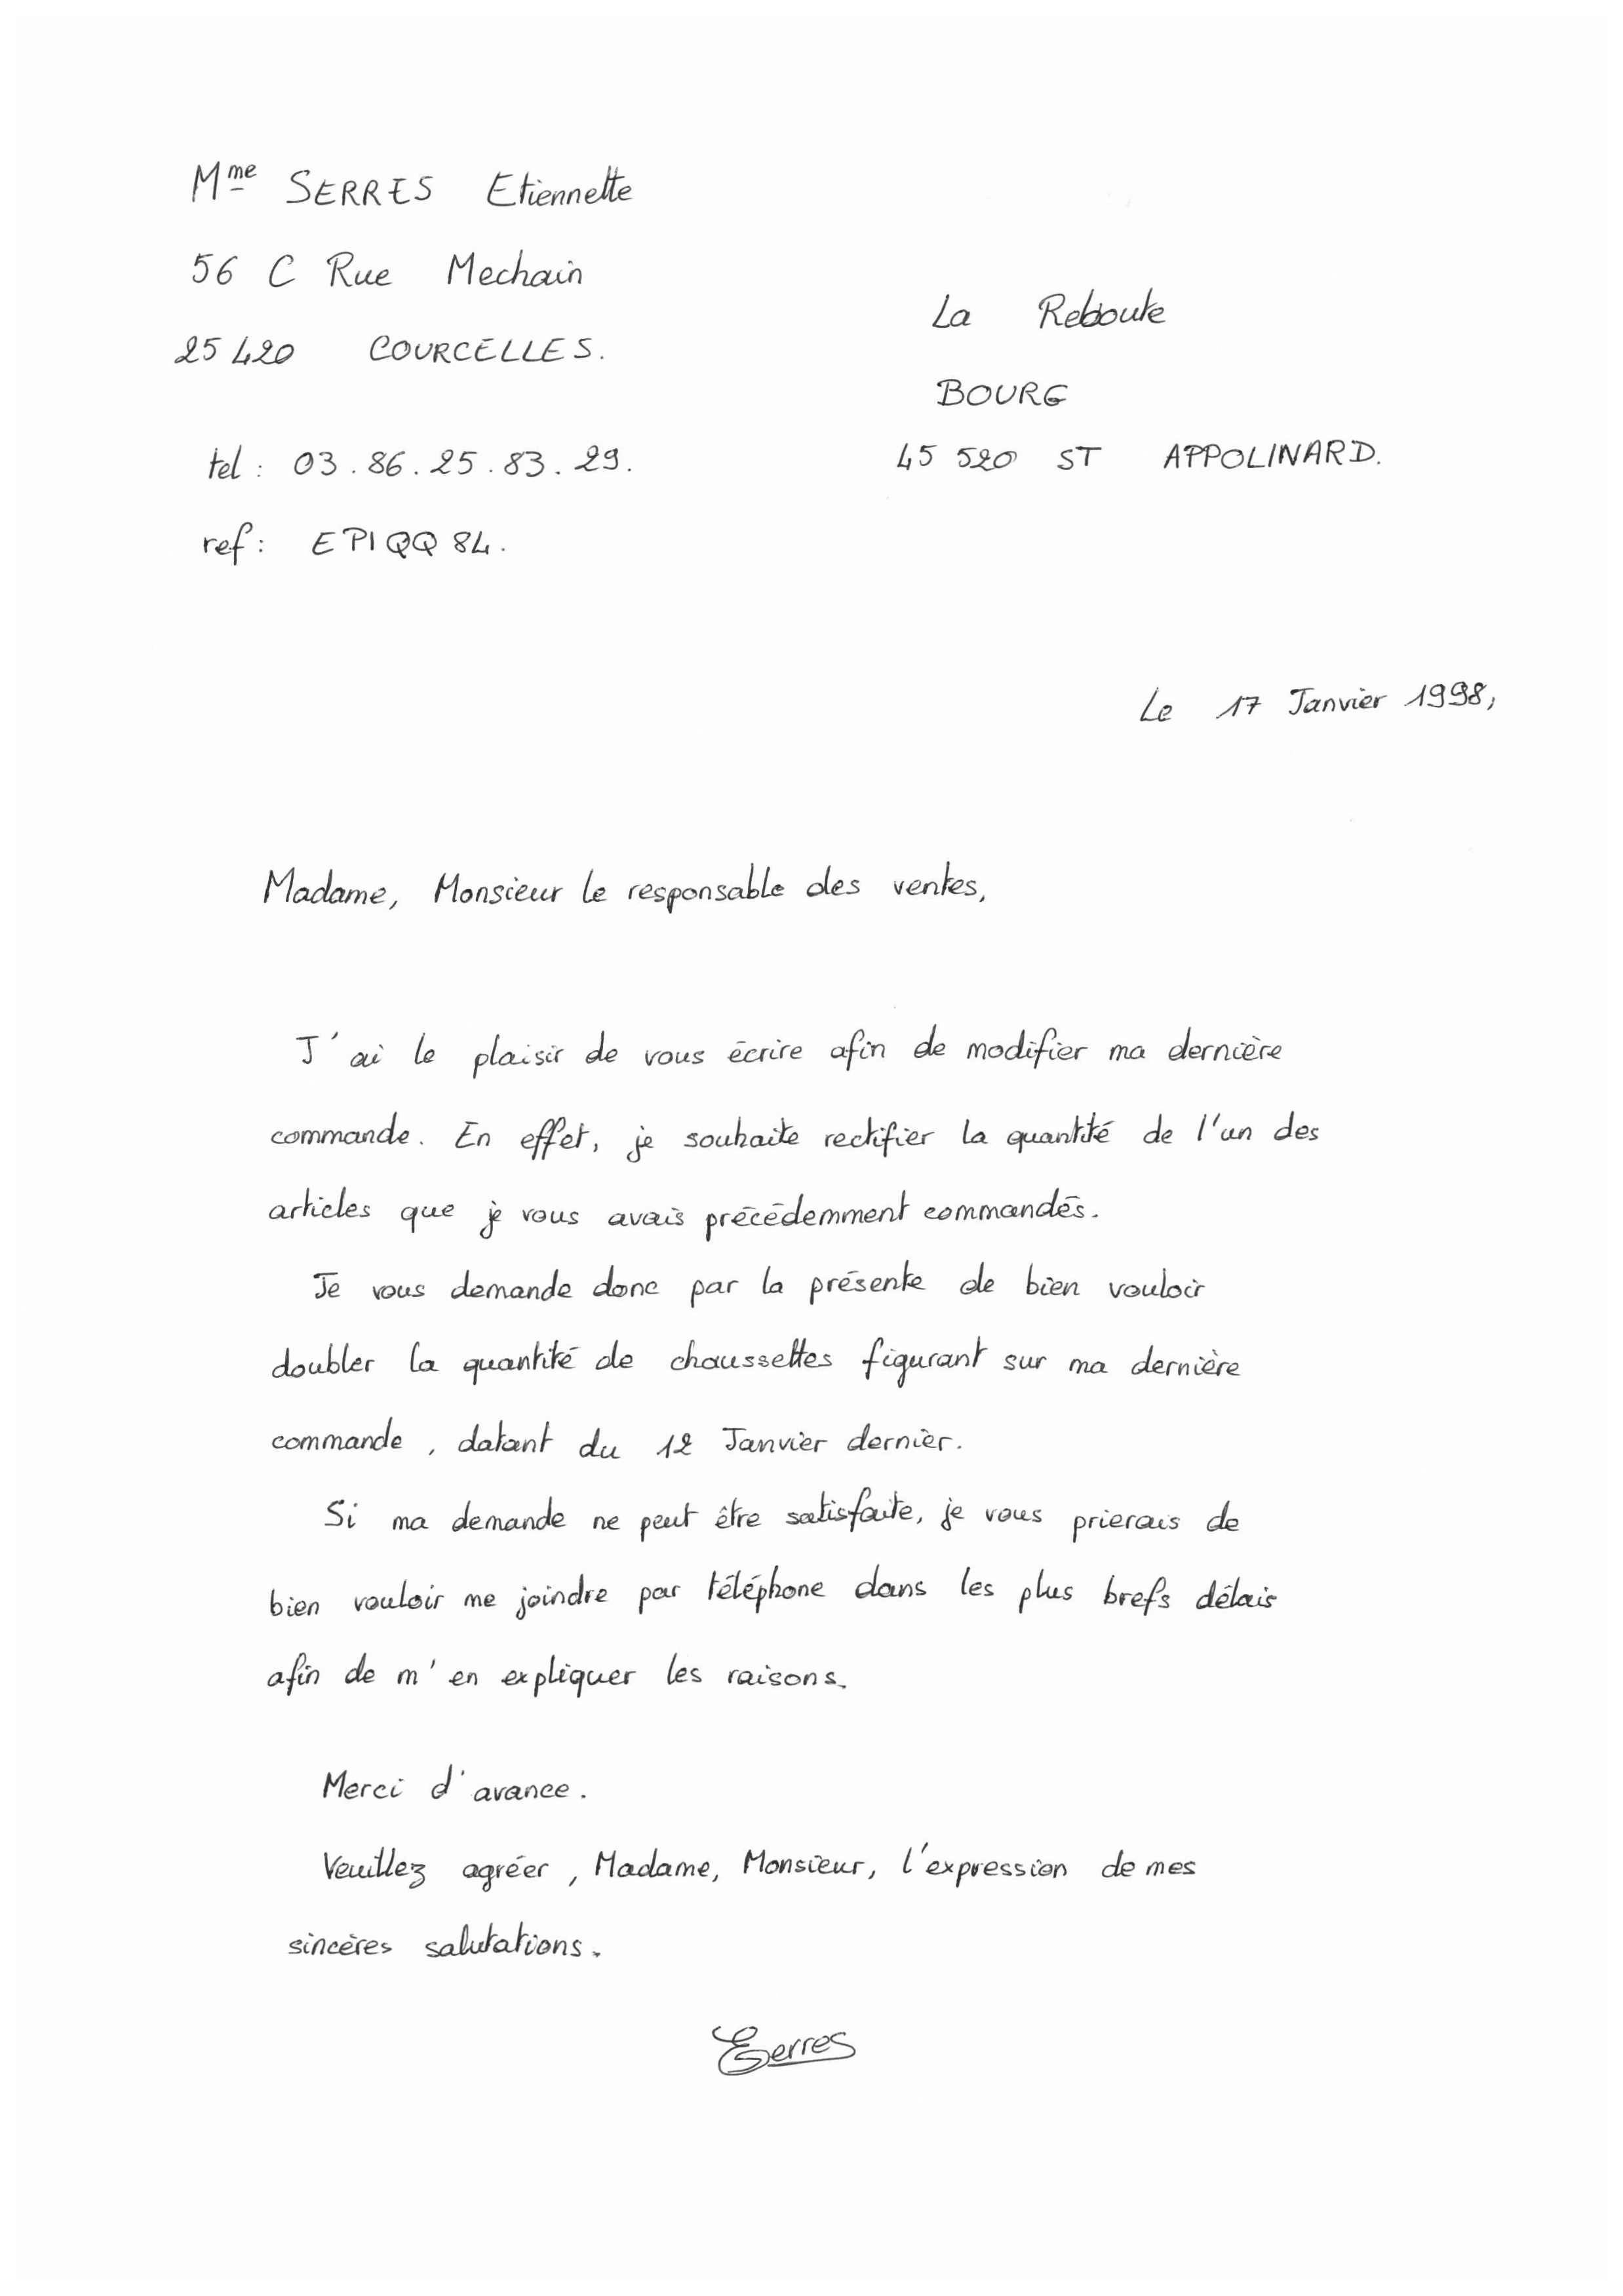 Mme SERRES Etiennette
56 C Rue Mechain
25 420 COURCELLES.
tel : 03.86.25.83.29.
ref : EPIQQ84.
La Reboute
BOURG
45 520 ST APPOLINARD.
Le 17 Janvier 1998,
Madame, Monsieur le responsable des ventes,
J'ai le plaisir de vous écrire afin de modifier ma dernière
commande. En effet, je souhaite rectifier la quantité de l'un des
articles que je vous avais précédemment commandés.
Je vous demande donc par la présente de bien vouloir
doubler la quantité de chaussettes figurant sur ma dernière
commande, datant du 12 Janvier dernier.
Si ma demande ne peut être satisfaite, je vous prierais de
bien vouloir me joindre par téléphone dans les plus brefs délais
afin de m'en expliquer les raisons.
Merci d'avance.
Veuillez agréer, Madame, Monsieur, l'expression de mes
sincères salutations.
ESerres